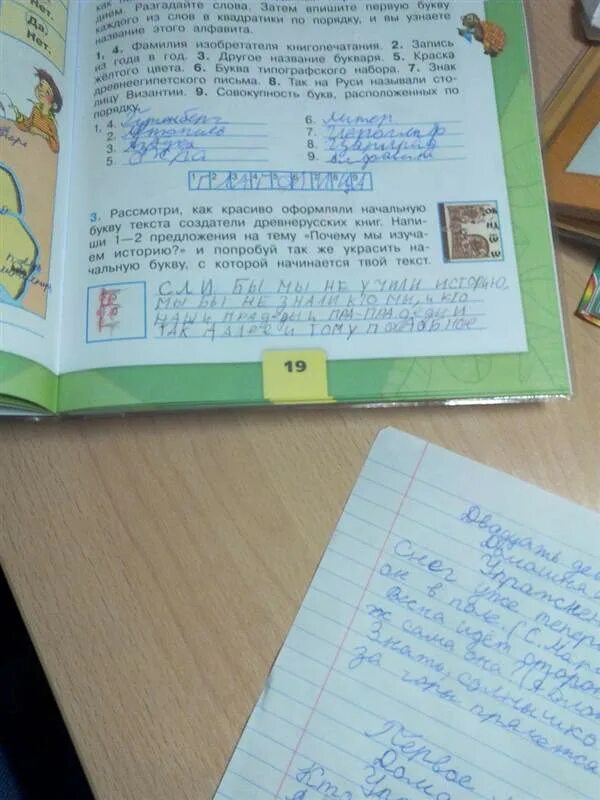 Нет.
Да,
Нет.
Разгадайте слова. Затем впишите первую букву
каждого из слов в квадратики по порядку, и вы узнаете
название этого алфавита.
1, 4. Фамилия изобретателя книгопечатания. 2. Запись
из года в год. 3. Другое название букваря. 5. Краска
жёлтого цвета. 6. Буква типографского набора. 7. Знак
древнеегипетского письма. 8. Так на Руси называли сто-
лицу Византии. 9. Совокупность букв, расположенных по
порядку.
1, 4. Гутенберг
2.
3. Азбука
5. Охра
6. Литер
7. Иероглиф
8. Царьград
9. Алфавит
3. Рассмотри, как красиво оформляли начальную
букву текста создатели древнерусских книг. Напи-
ши 1—2 предложения на тему «Почему мы изуча-
ем историю?» и попробуй так же украсить на-
чальную букву, с которой начинается твой текст.
СЛИ БЫ МЫ НЕ УЧИЛИ ИСТОРИЮ,
МЫ БЫ НЕ ЗНАЛИ КТО МЫ, И КТО
НАШИ ПРАДЕДЫ И ПРА-ПРАДЕДЫ И
ТАК ДАЛЕЕ И ТОМУ ПОДОБНОЕ
19
Двадцать
Домашняя
Упражнен
Снег уже тепер
он в поле (С. Мар
Весна идёт
ж сама она
Знать, солнышко
за горы прячется
Первое
Дома